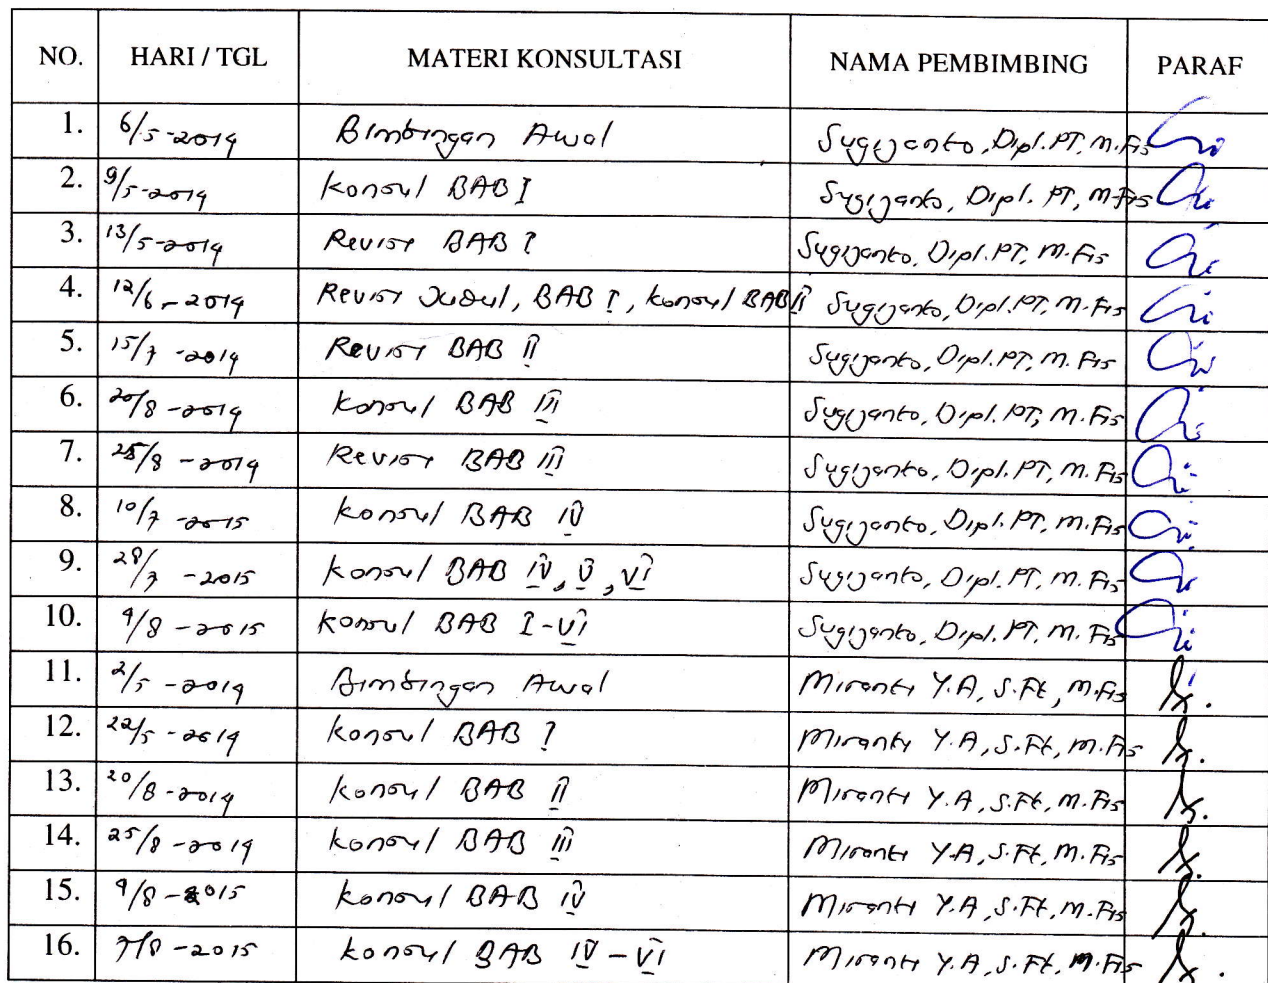 NO. HARI / TGL MATERI KONSULTASI NAMA PEMBIMBING PARAF
1. 6/5-2014 Bimbingan Awal Sugijanto, Dipl.PT, M.Fis
2. 9/5-2014 Konsul BAB I Sugijanto, Dipl. PT, M.Fis
3. 13/5-2014 Revisi BAB I Sugijanto, Dipl.PT, M.Fis
4. 12/6-2014 Revisi Judul, BAB I, konsul BAB II Sugijanto, Dipl.PT, M.Fis
5. 15/7-2014 Revisi BAB II Sugijanto, Dipl.PT, M.Fis
6. 20/8-2014 Konsul BAB III Sugijanto, Dipl. PT, M.Fis
7. 25/8-2014 Revisi BAB III Sugijanto, Dipl.PT, M.Fis
8. 10/7-2015 Konsul BAB IV Sugijanto, Dipl.PT, M.Fis
9. 28/7-2015 Konsul BAB IV, V, VI Sugijanto, Dipl.PT, M.Fis
10. 4/8-2015 Konsul BAB I-VI Sugijanto, Dipl.PT, M.Fis
11. 2/5-2014 Bimbingan Awal Miranti Y.A, S.Ft, M.Fis
12. 22/5-2014 Konsul BAB I Miranti Y.A, S.Ft, M.Fis
13. 20/8-2014 Konsul BAB II Miranti Y.A, S.Ft, M.Fis
14. 25/8-2014 Konsul BAB III Miranti Y.A, S.Ft, M.Fis
15. 4/8-2015 Konsul BAB IV Miranti Y.A, S.Ft, M.Fis
16. 7/8-2015 Konsul BAB IV-VI Miranti Y.A, S.Ft, M.Fis